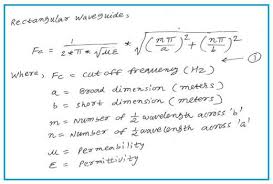 Rectangular waveguide,
Fc = 1 / 2*π*√με * √(mπ/a)² + (nπ/b)² ← ①
Where, Fc = cut off frequency (Hz)
a = Broad dimension (meters)
b = short dimension (meters)
m = Number of ½ wavelength across 'b'
n = Number of ½ wavelength across 'a'
μ = Permeability
E = Permittivity